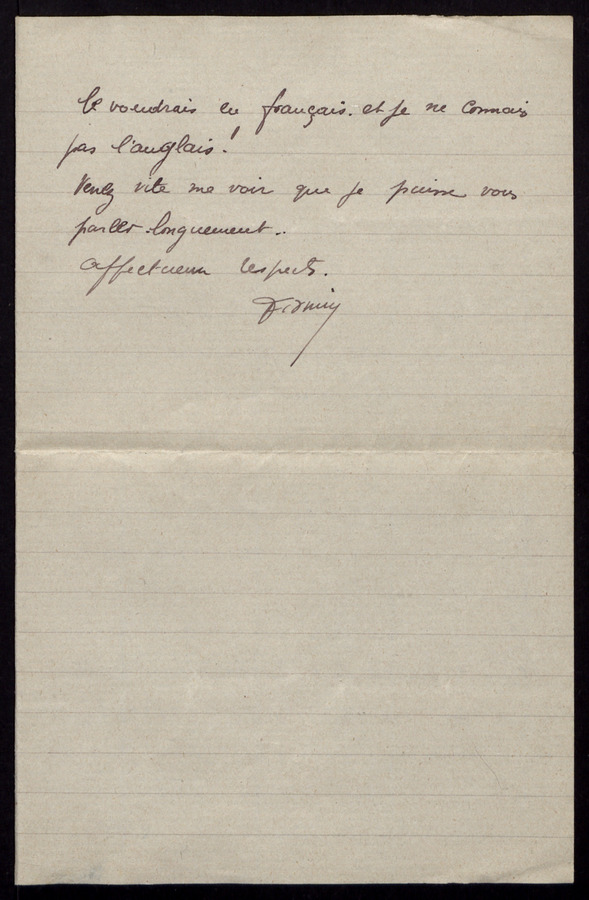 le voudrais en français. et je ne connais
pas l'anglais.!
Venez vite me voir que je puisse vous
parler longuement..
affectueux respects.